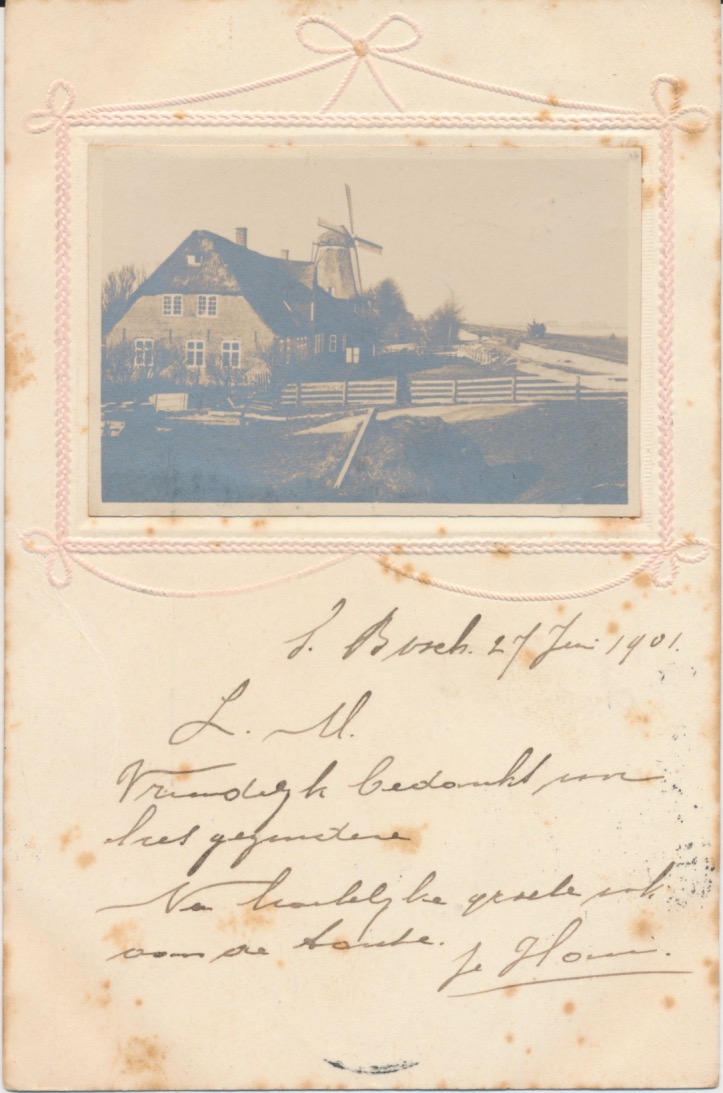 s. Bosch. 27 Juni 1901.
L. M.
Vriendelijk bedankt voor
het gezondene
Na hartelijke groete ook
aan de tante. je